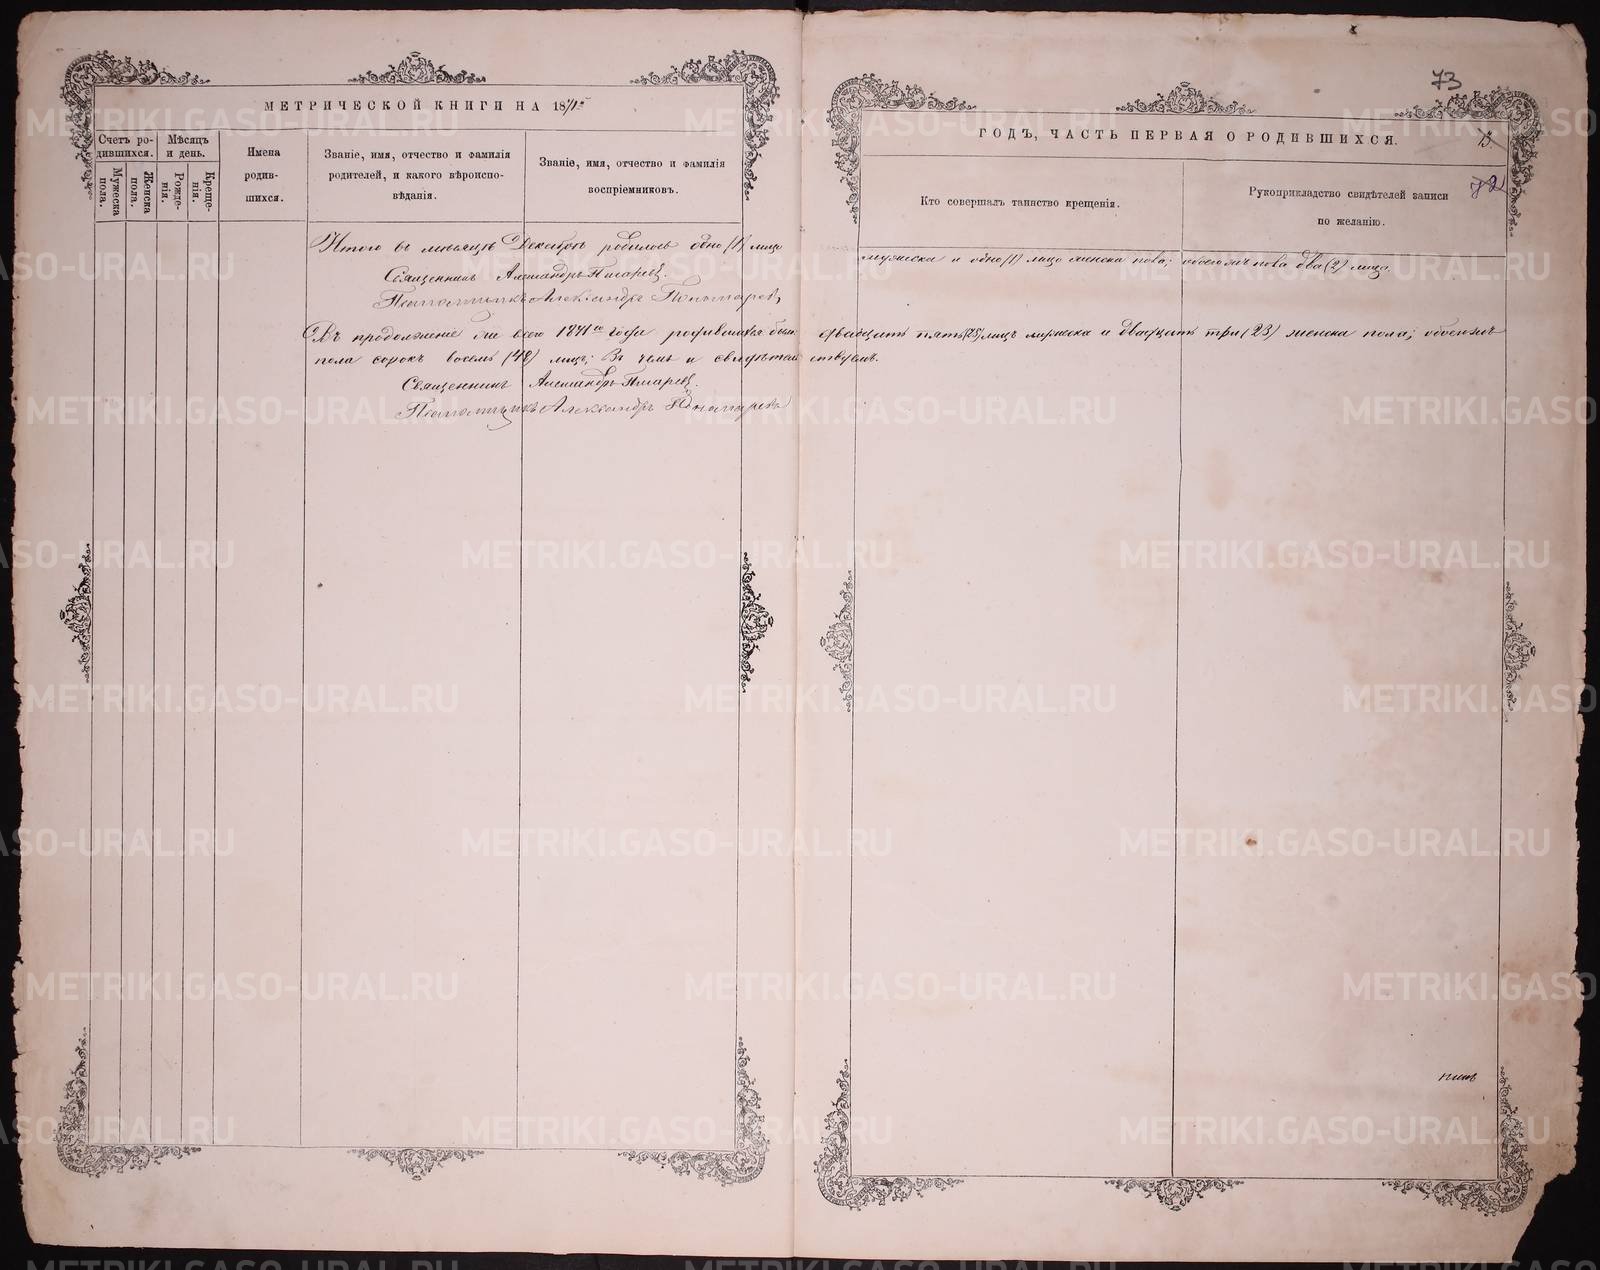 МЕТРИЧЕСКОЙ КНИГИ НА 1871й
Счетъ ро-
дившихся.
Мѣсяцъ
и день.
Мужеска
пола.
Женска
пола.
Рожде-
нія.
Креще-
нія.
Имена
родив-
шихся.
Званіе, имя, отчество и фамилія
родителей, и какого вѣроиспо-
вѣданія.
Званіе, имя, отчество и фамилія
воспріемниковъ.
Итого въ мѣсяцѣ Декабрѣ родилось одно (1) лицо
Священникъ Александръ
Александръ Пономаревъ
Въ продолженіе же всего 1871го года родившихся было
пола сорокъ восемь (48) лицъ; Въ чемъ и свидѣтель
Священникъ Александръ
Александръ Пономаревъ
73
ГОДЪ, ЧАСТЬ ПЕРВАЯ О РОДИВШИХСЯ.
Кто совершалъ таинство крещенія.
Рукоприкладство свидѣтелей записи
по желанію.
мужеска и одно (1) лицо женска пола; обоего пола два (2) лица.
двадцать пять (25) лицъ мужеска и двадцать три (23) женска пола; обоего
ствуемъ.
METRIKI.GASO-URAL.RU